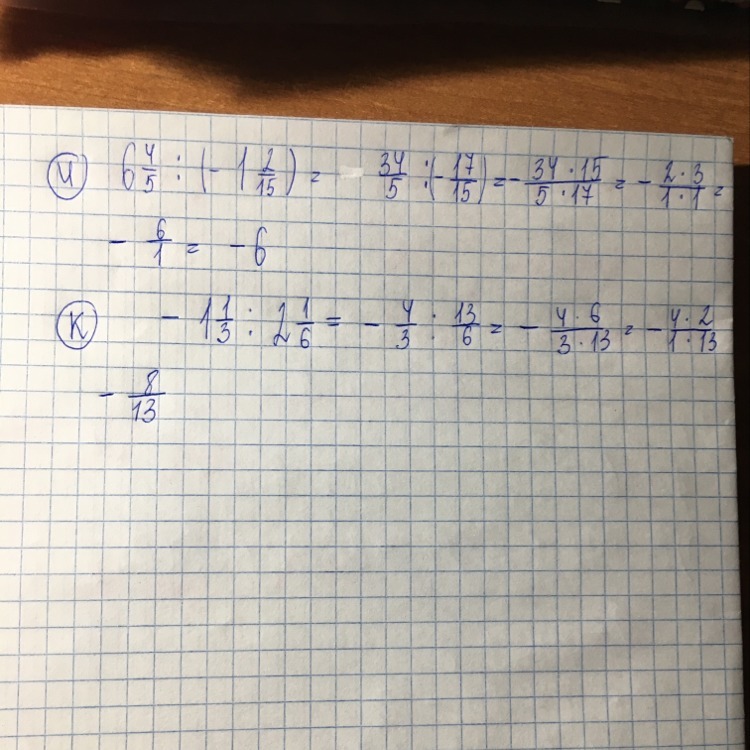 М) 6 4/5 : (- 1 2/15) = 34/5 : (- 17/15) = - 34 · 15 / 5 · 17 = - 2 · 3 / 1 · 1 =
- 6/1 = - 6
К) - 1 1/3 : 2 1/6 = - 4/3 : 13/6 = - 4 · 6 / 3 · 13 = - 4 · 2 / 1 · 13
- 8/13